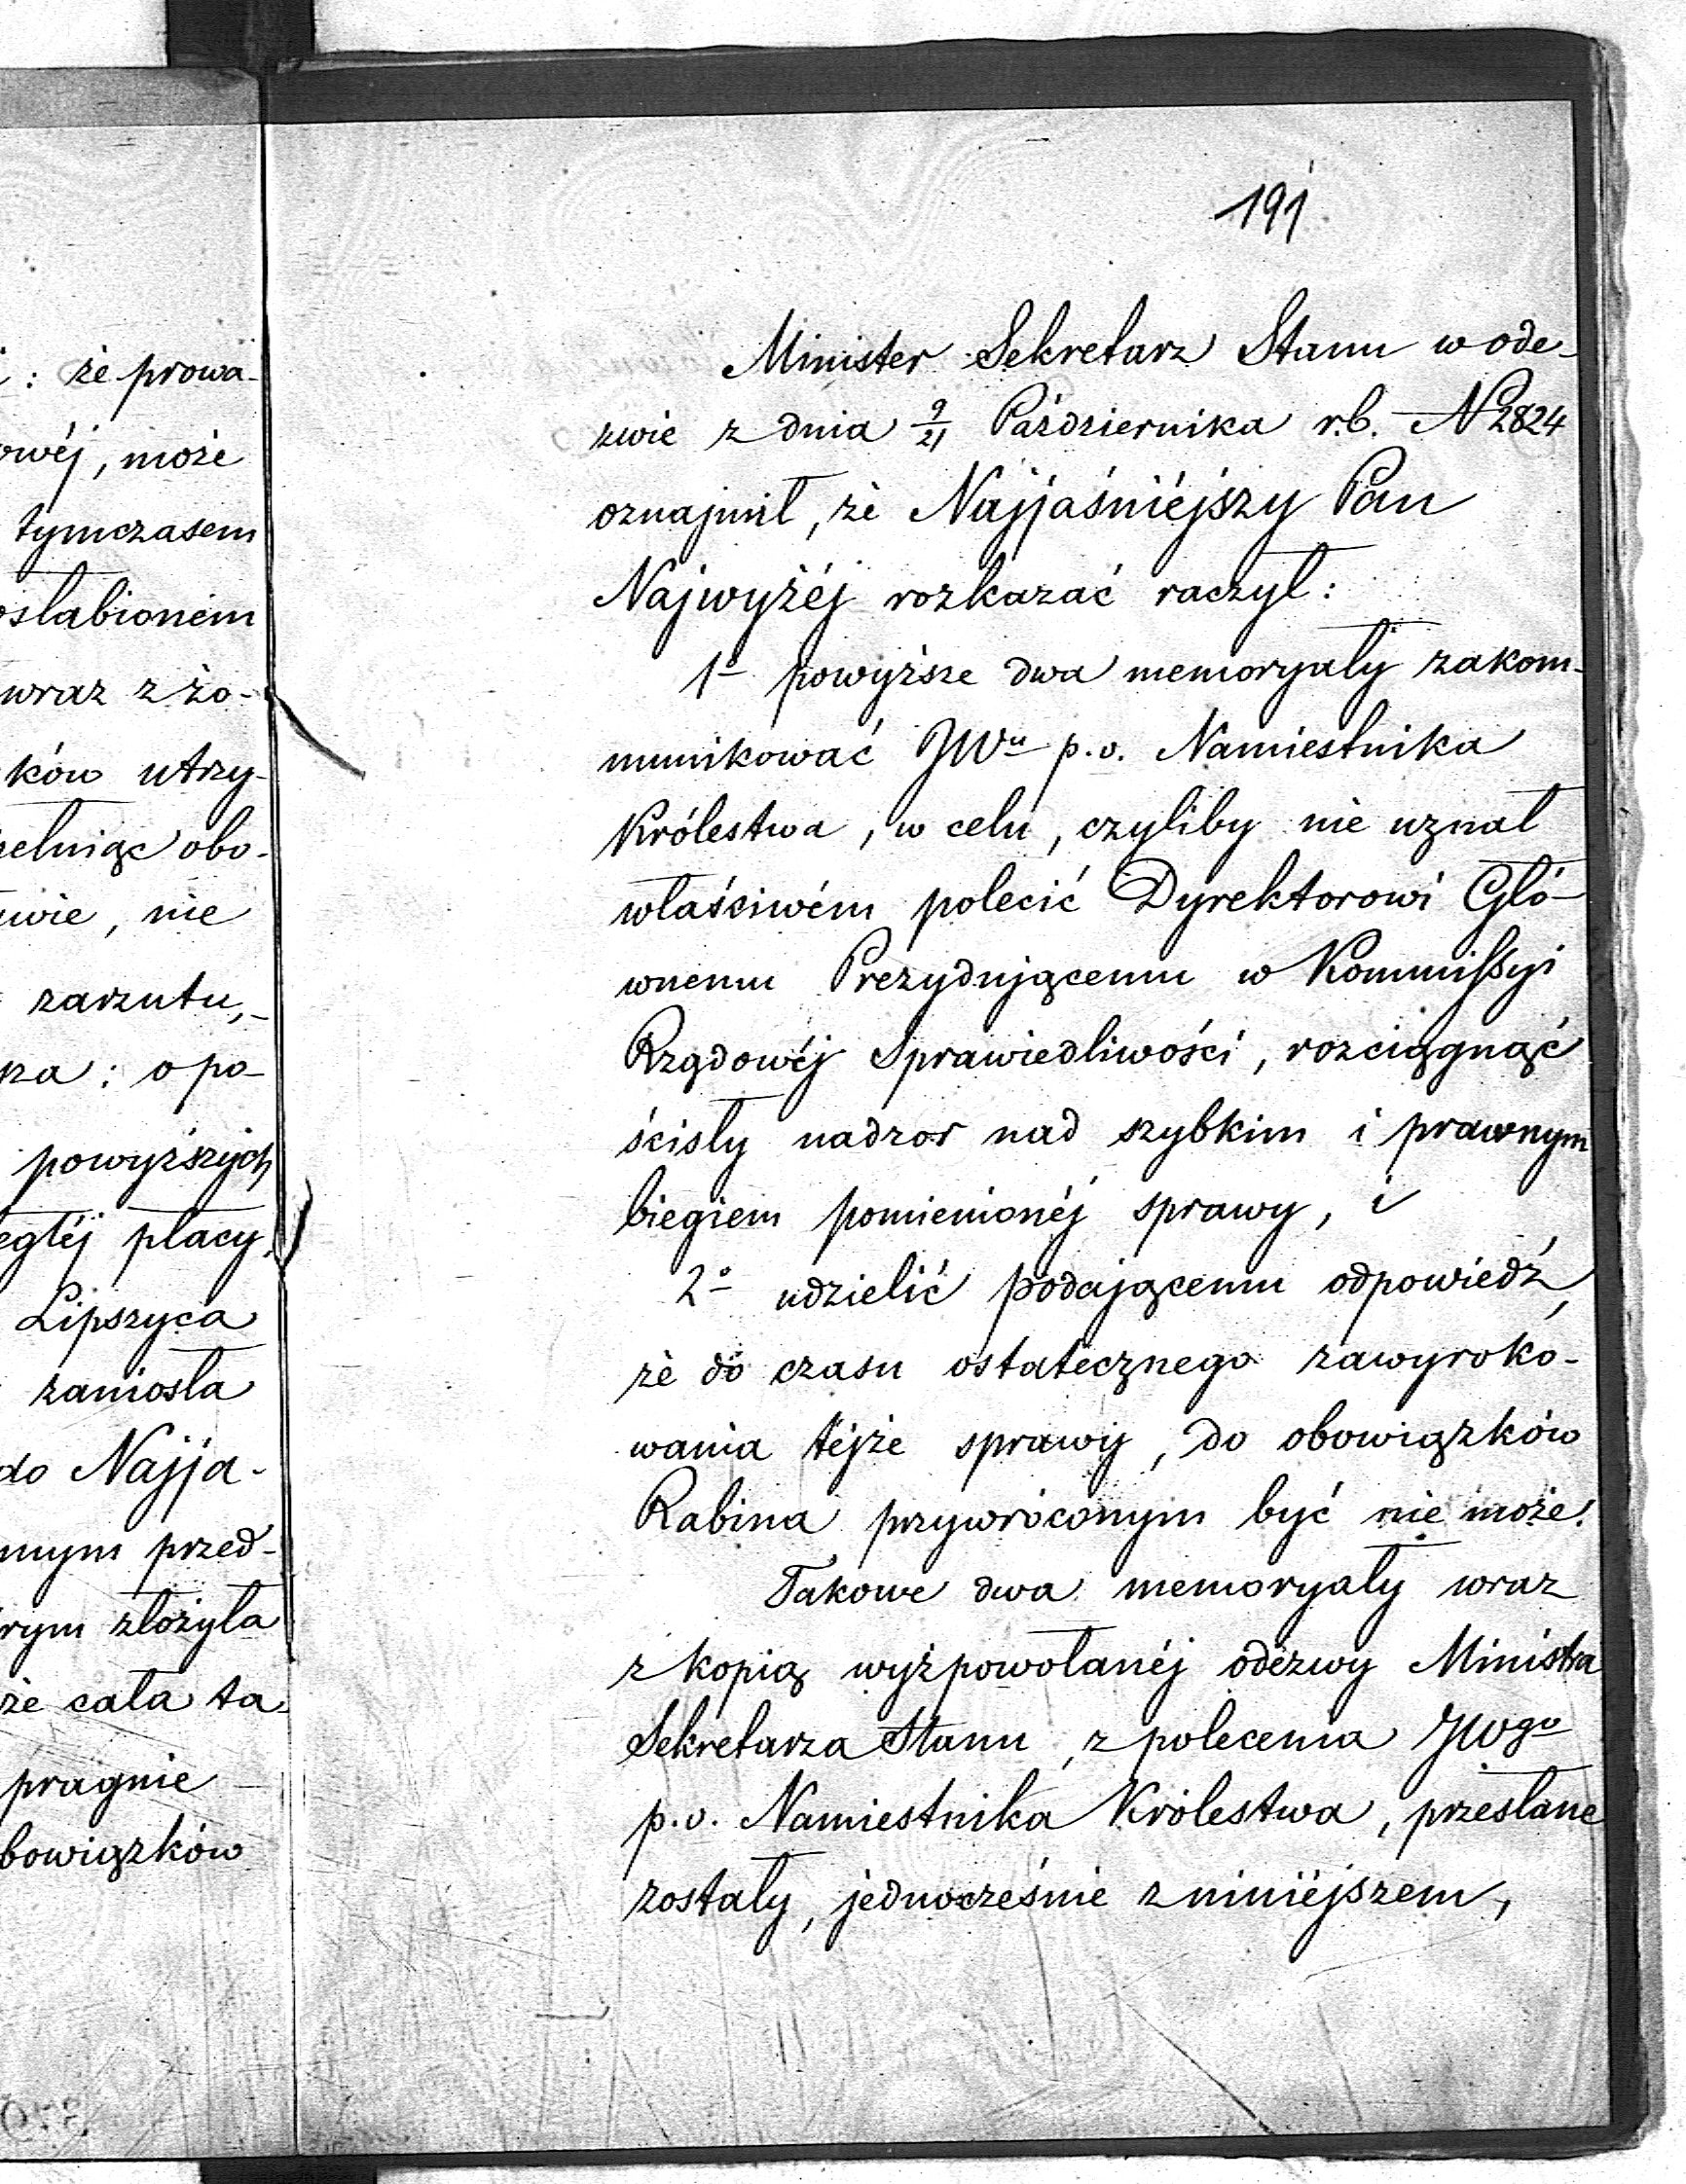 : że prowa-
owéj, może
tymczasem
osłabionem
wraz z żo-
ków utrzy-
ełniąc obo-
wie, nie
zarzutu,-
za: o po-
powyższych
egłéj płacy,
Lipszyca
zaniosła
do Najja-
nym przed-
rym złożyła
że cała ta
pragnie
bowiązków
191
Minister Sekretarz Stanu w ode-
zwie z dnia 9/21 Października r.b. N 2824
oznajmił, że Najjaśniéjszy Pan
Najwyżéj rozkazać raczył:
1º powyższe dwa memoryały zakom-
munikować JWu p.o. Namiestnika
Królestwa, w celu, czyliby nie uznał
właściwém polecić Dyrektorowi Głó-
wnemu Prezydującemu w Kommissyi
Rządowéj Sprawiedliwości, rozciągnąć
ścisły nadzor nad szybkim i prawnym
biegiem pomienionéj sprawy, i
2º udzielić podającemu odpowiedź,
że do czasu ostatecznego zawyroko-
wania téjże sprawy, do obowiązków
Rabina przywróconym być nie może.
Takowe dwa memoryały wraz
z kopią wyżpowołanéj odezwy Ministra
Sekretarza Stanu, z polecenia JWgo
p.o. Namiestnika Królestwa, przesłane
zostały, jednocześnie z niniéjszem,